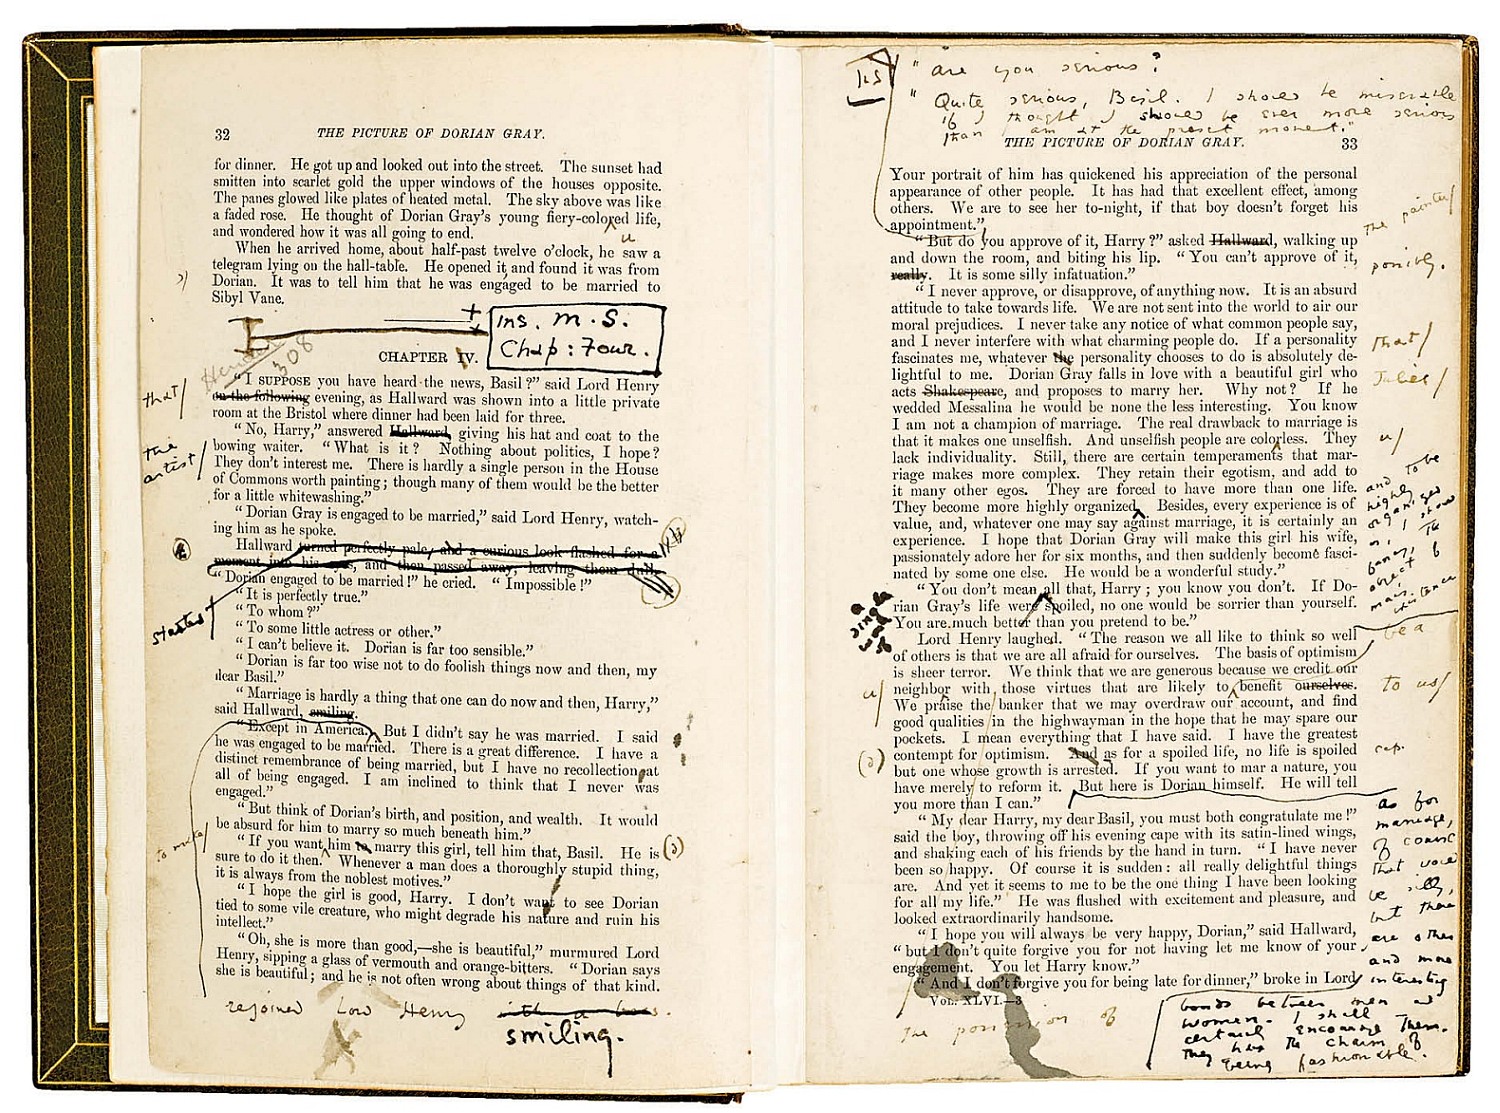 32 THE PICTURE OF DORIAN GRAY.
for dinner. He got up and looked out into the street. The sunset had
smitten into scarlet gold the upper windows of the houses opposite.
The panes glowed like plates of heated metal. The sky above was like
a faded rose. He thought of Dorian Gray's young fiery-colored life,
and wondered how it was all going to end.
u
When he arrived home, about half-past twelve o'clock, he saw a
telegram lying on the hall-table. He opened it and found it was from
Dorian. It was to tell him that he was engaged to be married to
Sibyl Vane.
ins. M.S.
Chap: Four.
CHAPTER IV.
308
"I SUPPOSE you have heard the news, Basil?" said Lord Henry
that/
on the following evening, as Hallward was shown into a little private
room at the Bristol where dinner had been laid for three.
"No, Harry," answered Hallward, giving his hat and coat to the
the
artist/
bowing waiter. "What is it? Nothing about politics, I hope?
They don't interest me. There is hardly a single person in the House
of Commons worth painting; though many of them would be the better
for a little whitewashing."
"Dorian Gray is engaged to be married," said Lord Henry, watch-
ing him as he spoke.
Hallward turned perfectly pale, and a curious look flashed for a
moment into his eyes, and then passed away, leaving them dull.
"Dorian engaged to be married!" he cried. "Impossible!"
"It is perfectly true."
"To whom?"
started
"To some little actress or other."
"I can't believe it. Dorian is far too sensible."
"Dorian is far too wise not to do foolish things now and then, my
dear Basil."
"Marriage is hardly a thing that one can do now and then, Harry,"
said Hallward, smiling.
"Except in America. But I didn't say he was married. I said
he was engaged to be married. There is a great difference. I have a
distinct remembrance of being married, but I have no recollection at
all of being engaged. I am inclined to think that I never was
engaged."
"But think of Dorian's birth, and position, and wealth. It would
be absurd for him to marry so much beneath him."
to make/
"If you want him to marry this girl, tell him that, Basil. He is
sure to do it then. Whenever a man does a thoroughly stupid thing,
it is always from the noblest motives."
"I hope the girl is good, Harry. I don't want to see Dorian
tied to some vile creature, who might degrade his nature and ruin his
intellect."
"Oh, she is more than good,—she is beautiful," murmured Lord
Henry, sipping a glass of vermouth and orange-bitters. "Dorian says
she is beautiful; and he is not often wrong about things of that kind.
rejoined Lord Henry
smiling.
"Are you serious?
"Quite serious, Basil. I should be miserable
if I thought I should be ever more serious
than I am at the present moment."
THE PICTURE OF DORIAN GRAY. 33
Your portrait of him has quickened his appreciation of the personal
appearance of other people. It has had that excellent effect, among
others. We are to see her to-night, if that boy doesn't forget his
appointment."
the painter/
"But do you approve of it, Harry?" asked Hallward, walking up
and down the room, and biting his lip. "You can't approve of it,
possibly.
really. It is some silly infatuation."
"I never approve, or disapprove, of anything now. It is an absurd
attitude to take towards life. We are not sent into the world to air our
moral prejudices. I never take any notice of what common people say,
and I never interfere with what charming people do. If a personality
that/
fascinates me, whatever the personality chooses to do is absolutely de-
lightful to me. Dorian Gray falls in love with a beautiful girl who
Juliet/
acts Shakespeare, and proposes to marry her. Why not? If he
wedded Messalina he would be none the less interesting. You know
I am not a champion of marriage. The real drawback to marriage is
that it makes one unselfish. And unselfish people are colorless. They
u/
lack individuality. Still, there are certain temperaments that mar-
riage makes more complex. They retain their egotism, and add to
it many other egos. They are forced to have more than one life.
They become more highly organized. Besides, every experience is of
value, and, whatever one may say against marriage, it is certainly an
experience. I hope that Dorian Gray will make this girl his wife,
passionately adore her for six months, and then suddenly become fasci-
nated by some one else. He would be a wonderful study."
and to be
highly
organized
is, I should
fancy, the
object of
man's
existence
"You don't mean all that, Harry; you know you don't. If Do-
rian Gray's life were spoiled, no one would be sorrier than yourself.
You are much better than you pretend to be."
Lord Henry laughed. "The reason we all like to think so well
of others is that we are all afraid for ourselves. The basis of optimism
is sheer terror. We think that we are generous because we credit our
neighbor with those virtues that are likely to benefit ourselves.
u/
be a
to us/
We praise the banker that we may overdraw our account, and find
good qualities in the highwayman in the hope that he may spare our
pockets. I mean everything that I have said. I have the greatest
contempt for optimism. And as for a spoiled life, no life is spoiled
cap.
but one whose growth is arrested. If you want to mar a nature, you
have merely to reform it. But here is Dorian himself. He will tell
you more than I can."
"My dear Harry, my dear Basil, you must both congratulate me!"
said the boy, throwing off his evening cape with its satin-lined wings,
and shaking each of his friends by the hand in turn. "I have never
been so happy. Of course it is sudden: all really delightful things
are. And yet it seems to me to be the one thing I have been looking
for all my life." He was flushed with excitement and pleasure, and
looked extraordinarily handsome.
"I hope you will always be very happy, Dorian," said Hallward,
"but I don't quite forgive you for not having let me know of your
engagement. You let Harry know."
"And I don't forgive you for being late for dinner," broke in Lord
VOL. XLVI.—3
as for
marriage,
of course
that would
be silly,
but there
are other
and more
interesting
bonds between men and
women. I shall
certainly encourage them.
They have the charm of
being fashionable.